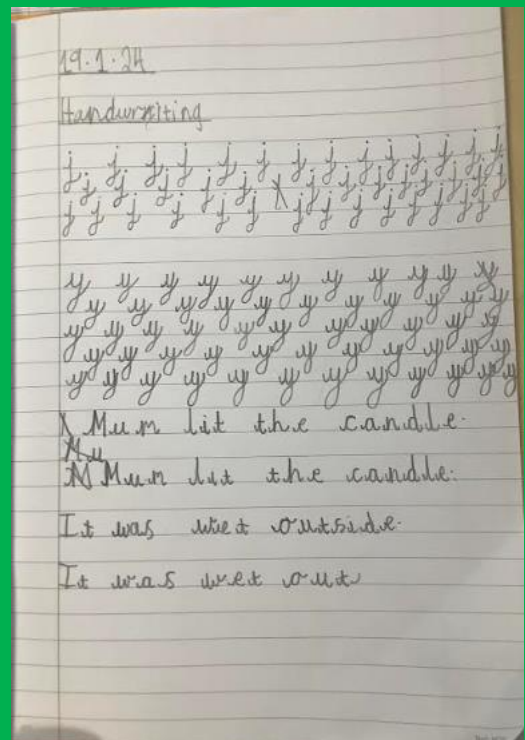 19.1.24
Handwriting
j j j j j j j j j j j j j j
j j j j j j j j j j j j j
j j j j j j j j j j j j j j
y y y y y y y y y y y
y y y y y y y y y y y
y y y y y y y y y y y
y y y y y y y y y y y
y y y y y y y y y y y y
Mum lit the candle.
Mu
Mum lit the candle.
It was wet outside.
It was wet out